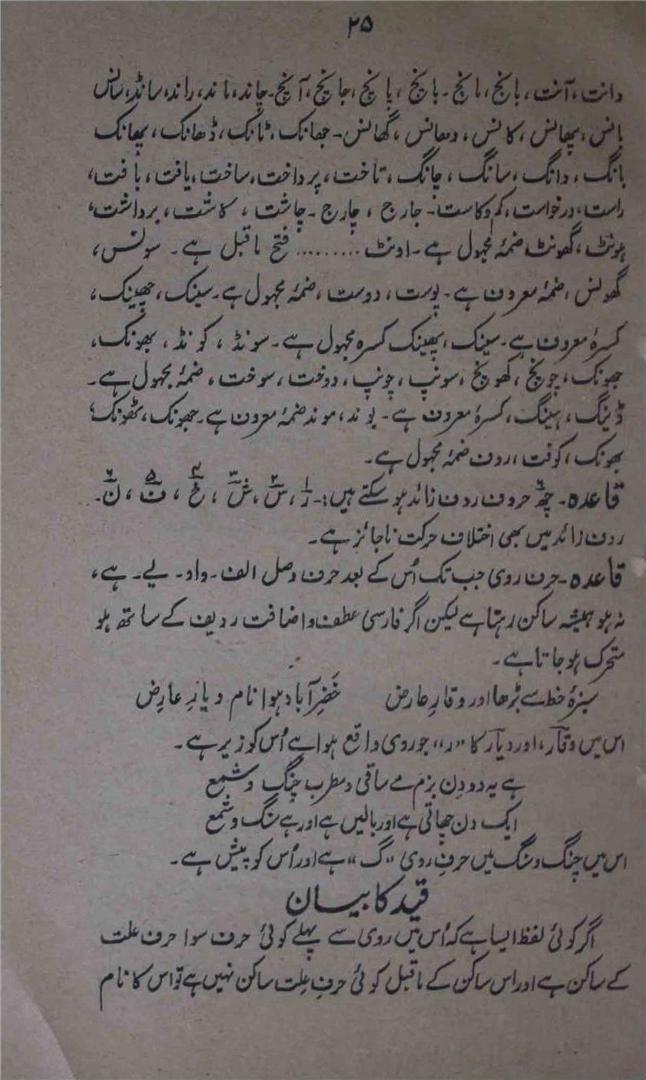 ۲۵
دانت، آنت، بانج، مانج۔ بانچ، پانچ، جانچ، آنچ۔ چاند، ماند، راند، سانڈ، سانس
بانس، پھانس، کانس، دھانس، گھانس۔ جھانک، ٹانک، ڈھانک، پھانک
بانگ، دانگ، سانگ، چانگ، تاخت، پرداخت، ساخت، یافت، بافت،
راست، درخواست، کم وکاست۔ جارج، چارج۔ چاشت، کاشت، برداشت،
ہونٹ، گھونٹ ضمۂ مجہول ہے۔ اونٹ ......... فتح ماقبل ہے۔ سونس،
گھونس، ضمۂ معروف ہے۔ پوست، دوست، ضمۂ مجہول ہے۔ سینک، چھینک،
کسرۂ معروف ہے۔ سینک، پھینک کسرہ مجہول ہے۔ سونڈ، کونڈ، بھونک،
جھونک، چونچ، کھونچ، سونپ، چونپ، دوخت، سوخت، ضمۂ مجہول ہے۔
ڈینگ، ہینگ، کسرۂ معروف ہے۔ بوند، موند ضمۂ معروف ہے۔ جھونک، ٹھونک،
بھونک، کوفت، ردف ضمۂ مجہول ہے۔
قاعدہ۔ چھ۶ حروف ردف زائد ہو سکتے ہیں:۔ ر۱، س۲، ش۳، خ۴، ف۵، ن۶۔
ردف زائد میں بھی اختلاف حرکت ناجائز ہے۔
قاعدہ۔ حرف روی جب تک اُس کے بعد حرف وصل الف۔ واو۔ یے۔ ہے،
نہ ہو ہمیشہ ساکن رہتا ہے لیکن اگر فارسی عطف و اضافت ردیف کے ساتھ ہو
متحرک ہو جاتا ہے۔
سبزۂ خط سے بڑھا اور وقارِ عارض خَضِر آباد ہوا نام دیارِ عارض
اس میں وقار، اور دیار کا "ر" جو روی واقع ہوا ہے اُس کو زیر ہے۔
ہے یہ دو دن بزم مے ساقی و مطرب چنگ و شمع
ایک دن چھاتی ہے اور بالیں ہے اور ہے سنگ و شمع
اس میں چنگ و سنگ میں حرفِ روی "گ" ہے اور اُس کو پیش ہے۔
قید کا بیان
اگر کوئی لفظ ایسا ہے کہ اُس میں روی سے پہلے کوئی حرف سوا حرف علت
کے ساکن ہے اور اس ساکن کے ماقبل کوئی حرفِ علت ساکن نہیں ہے تو اس کا نام